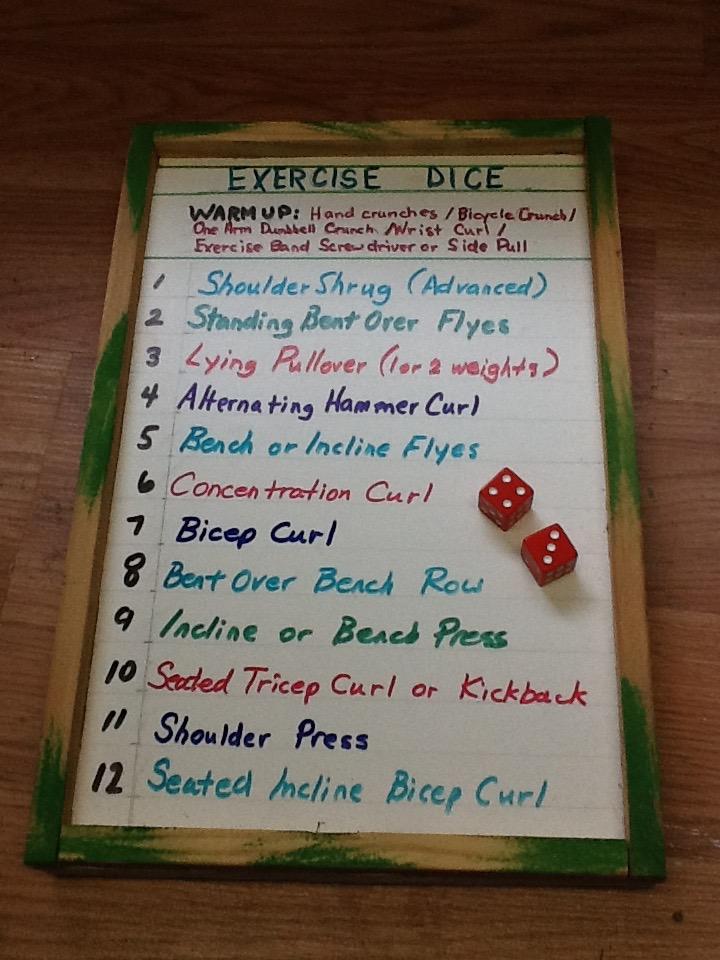 EXERCISE DICE
WARM UP: Hand crunches / Bicycle Crunch /
One Arm Dumbbell Crunch / Wrist Curl /
Exercise Band Screwdriver or Side Pull
1 Shoulder Shrug (Advanced)
2 Standing Bent Over Flyes
3 Lying Pullover (1 or 2 weights)
4 Alternating Hammer Curl
5 Bench or Incline Flyes
6 Concentration Curl
7 Bicep Curl
8 Bent Over Bench Row
9 Incline or Bench Press
10 Seated Tricep Curl or Kickback
11 Shoulder Press
12 Seated Incline Bicep Curl